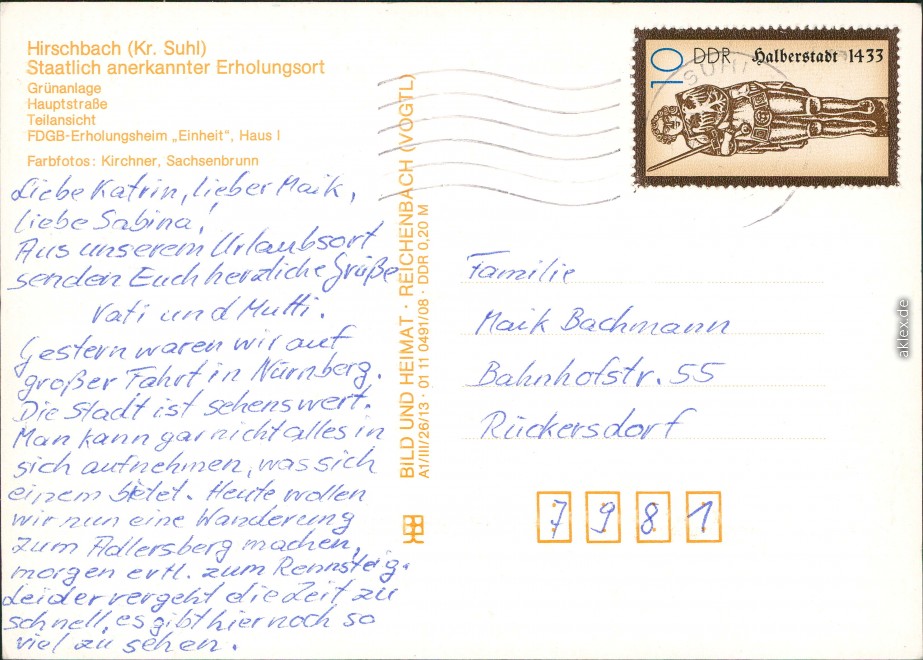 Hirschbach (Kr. Suhl)
Staatlich anerkannter Erholungsort
Grünanlage
Hauptstraße
Teilansicht
FDGB-Erholungsheim „Einheit“, Haus I
Farbfotos: Kirchner, Sachsenbrunn
Liebe Katrin, lieber Maik,
liebe Sabina!
Aus unserem Urlaubsort
senden Euch herzliche Grüße
Vati und Mutti.
Gestern waren wir auf
großer Fahrt in Nürnberg.
Die Stadt ist sehenswert.
Man kann gar nicht alles in
sich aufnehmen, was sich
einem bietet. Heute wollen
wir nun eine Wanderung
zum Adlersberg machen,
morgen evtl. zum Rennsteig.
Leider vergeht die Zeit zu
schnell, es gibt hier noch so
viel zu sehen.
BILD UND HEIMAT · REICHENBACH (VOGTL)
A1/III/26/13 · 01 11 0491/08 · DDR 0,20 M
10 DDR Halberstadt 1433
SUHL
Familie
Maik Bachmann
Bahnhofstr. 55
Rückersdorf
7981
aklex.de